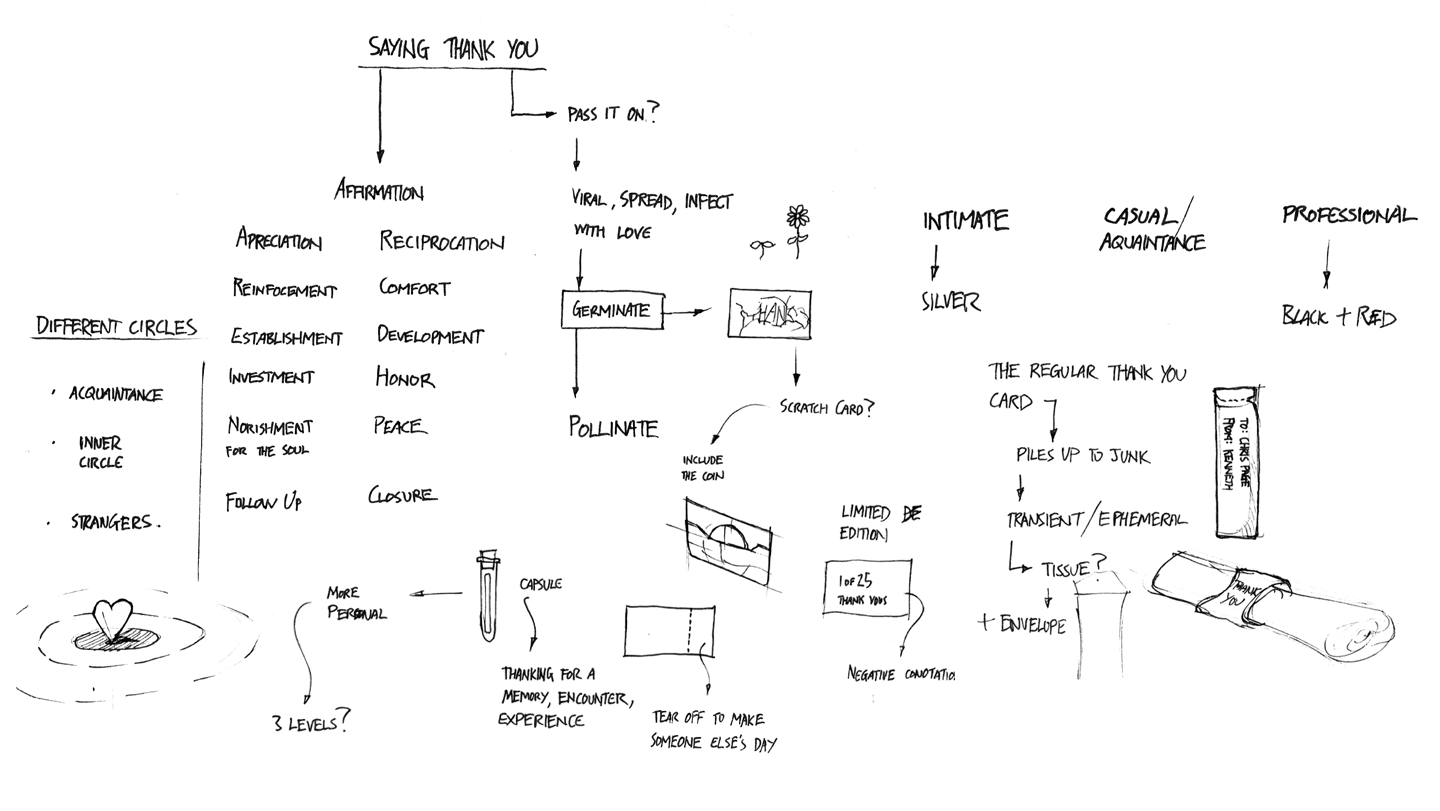 SAYING THANK YOU
PASS IT ON?
VIRAL, SPREAD, INFECT
WITH LOVE
GERMINATE
POLLINATE
THANKS
SCRATCH CARD?
INCLUDE
THE COIN
AFFIRMATION
APRECIATION
RECIPROCATION
REINFOCEMENT
COMFORT
ESTABLISHMENT
DEVELOPMENT
INVESTMENT
HONOR
NORISHMENT
FOR THE SOUL
PEACE
FOLLOW UP
CLOSURE
DIFFERENT CIRCLES
· ACQUAINTANCE
· INNER
CIRCLE
· STRANGERS.
INTIMATE
SILVER
CASUAL/
AQUAINTANCE
PROFESSIONAL
BLACK + RED
THE REGULAR THANK YOU
CARD
PILES UP TO JUNK
TRANSIENT/EPHEMERAL
TISSUE?
+ ENVELOPE
TO: CHRIS PAGE
FROM: KENNETH
THANK
YOU
LIMITED
EDITION
1 OF 25
THANK YOUS
NEGATIVE CONOTATIO
TEAR OFF TO MAKE
SOMEONE ELSE'S DAY
CAPSULE
THANKING FOR A
MEMORY, ENCOUNTER,
EXPERIENCE
MORE
PERSONAL
3 LEVELS?